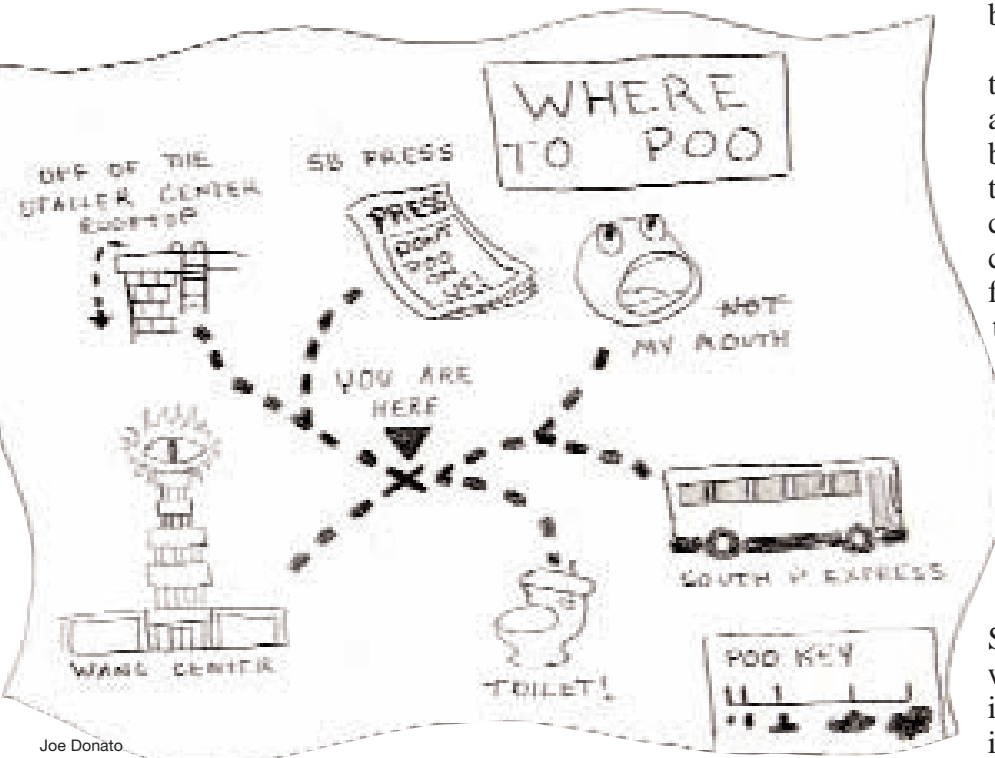 WHERE
TO POO
OFF OF THE
STALLER CENTER
ROOFTOP
SB PRESS
PRESS
DONT
POO
ON
US!
NOT
MY MOUTH
YOU ARE
HERE
SOUTH P EXPRESS
WANG CENTER
TOILET!
POO KEY
Joe Donato